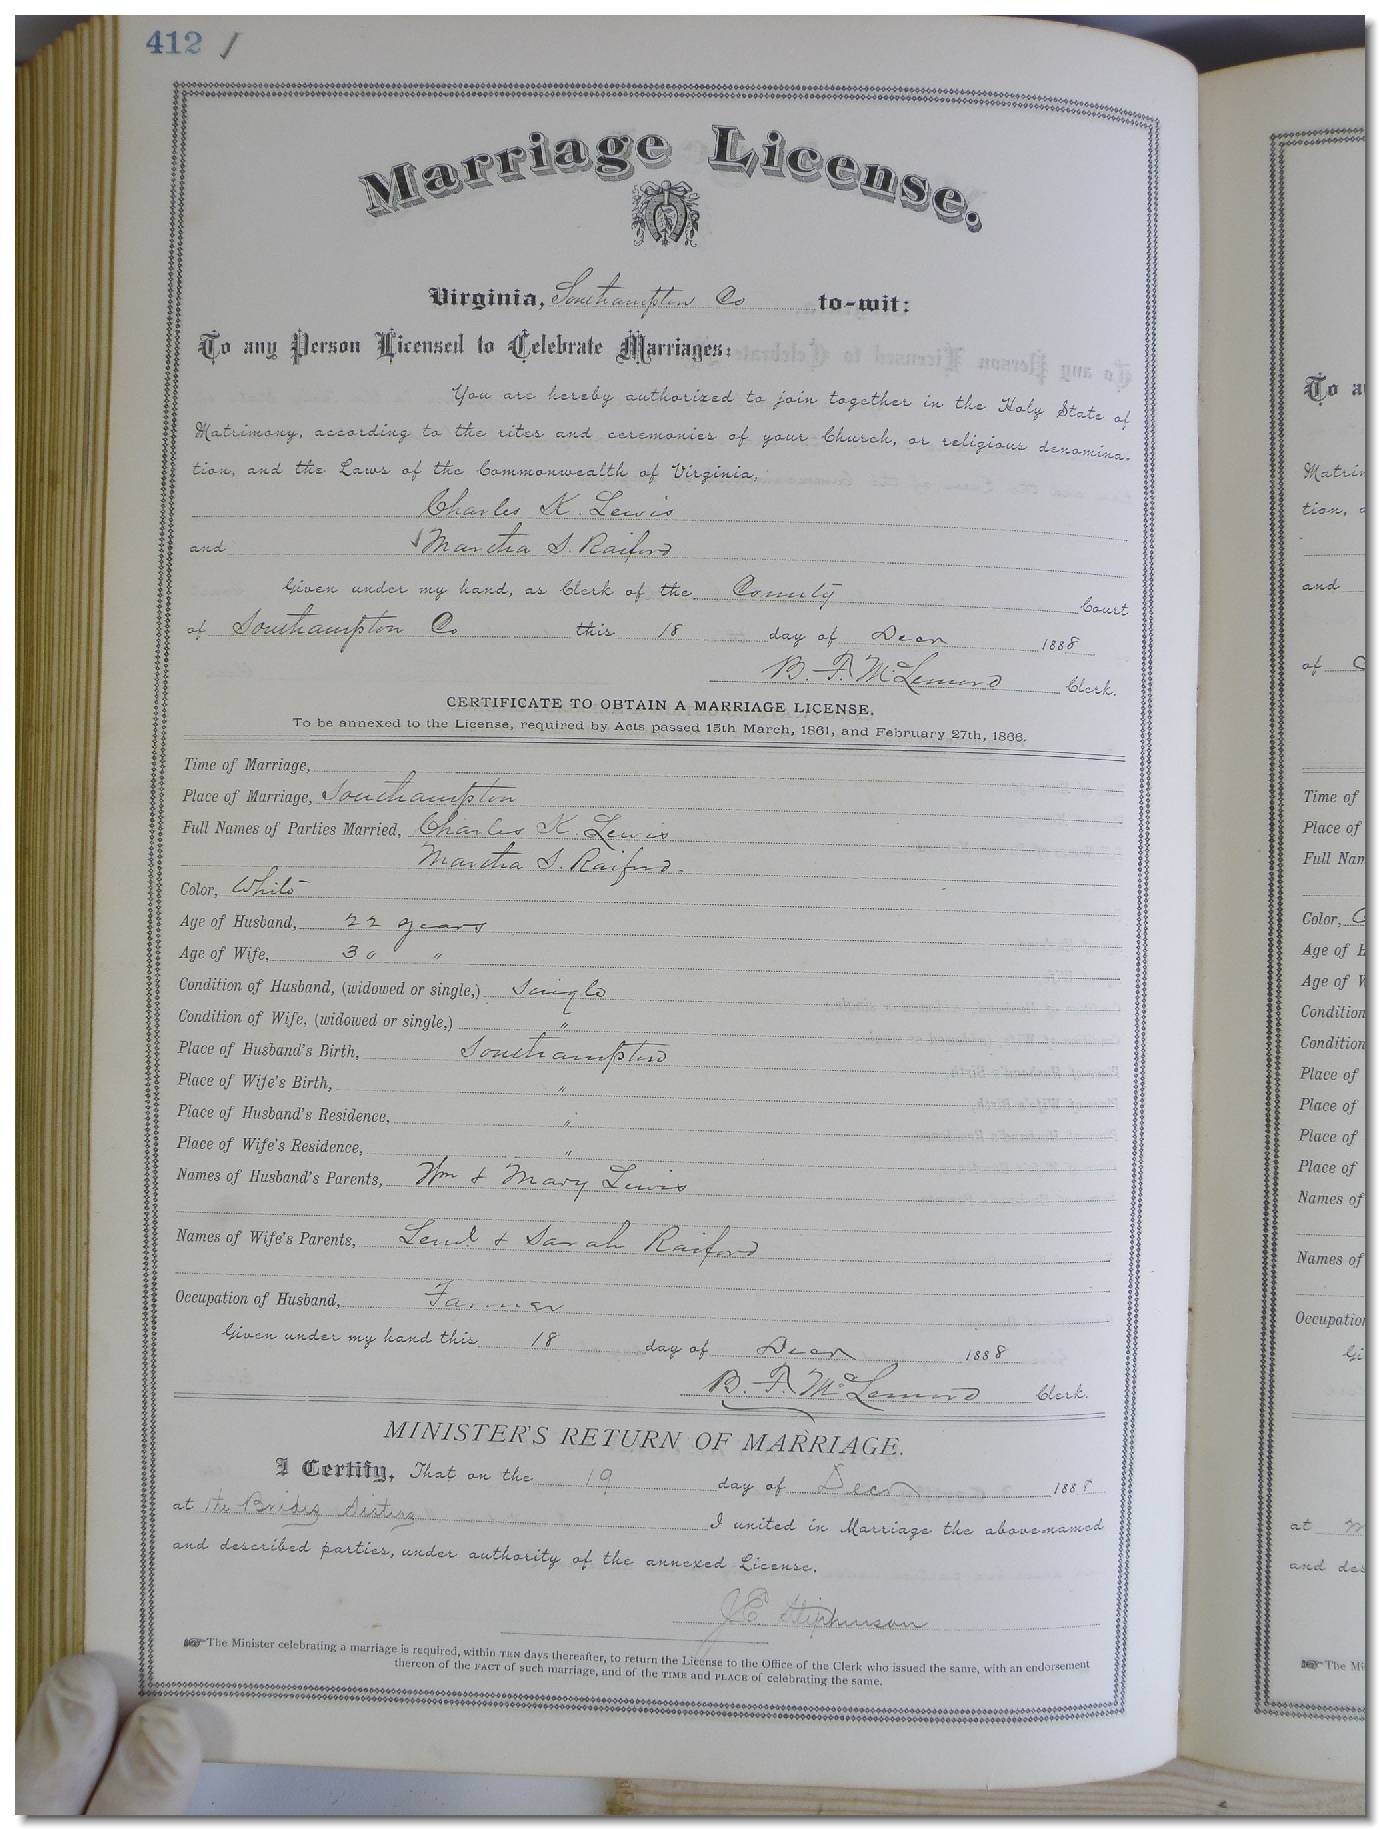 412
Marriage License.
Virginia, Southampton Co to-wit:
To any Person Licensed to Celebrate Marriages:
You are hereby authorized to join together in the Holy State of
Matrimony, according to the rites and ceremonies of your Church, or religious denomina-
tion, and the Laws of the Commonwealth of Virginia,
Charles K. Lewis
and Martha S. Raiford
Given under my hand, as Clerk of the County Court
of Southampton Co this 18 day of Decr 1888
B. F. McLemore Clerk.
CERTIFICATE TO OBTAIN A MARRIAGE LICENSE,
To be annexed to the License, required by Acts passed 15th March, 1861, and February 27th, 1866.
Time of Marriage,
Place of Marriage, Southampton
Full Names of Parties Married, Charles K. Lewis
Martha S. Raiford.
Color, White
Age of Husband, 22 years
Age of Wife, 30 "
Condition of Husband, (widowed or single,) Single
Condition of Wife, (widowed or single,) "
Place of Husband's Birth, Southampton
Place of Wife's Birth, "
Place of Husband's Residence, "
Place of Wife's Residence, "
Names of Husband's Parents, Wm & Mary Lewis
Names of Wife's Parents, & Sarah Raiford
Occupation of Husband, Farmer
Given under my hand this 18 day of Decr 1888
B. F. McLemore Clerk.
MINISTER'S RETURN OF MARRIAGE.
I Certify, That on the 19 day of Decr 1888
at the Brides Sisters I united in Marriage the above-named
and described parties, under authority of the annexed License.
J E Stephenson
The Minister celebrating a marriage is required, within TEN days thereafter, to return the License to the Office of the Clerk who issued the same, with an endorsement
thereon of the FACT of such marriage, and of the TIME and PLACE of celebrating the same.
To a
Matrim
tion, a
and
of
Time of
Place of
Full Nam
Color,
Age of H
Age of W
Condition
Condition
Place of
Place of
Place of
Place of
Names of
Names of
Occupatio
Gi
at
and des
The Mi